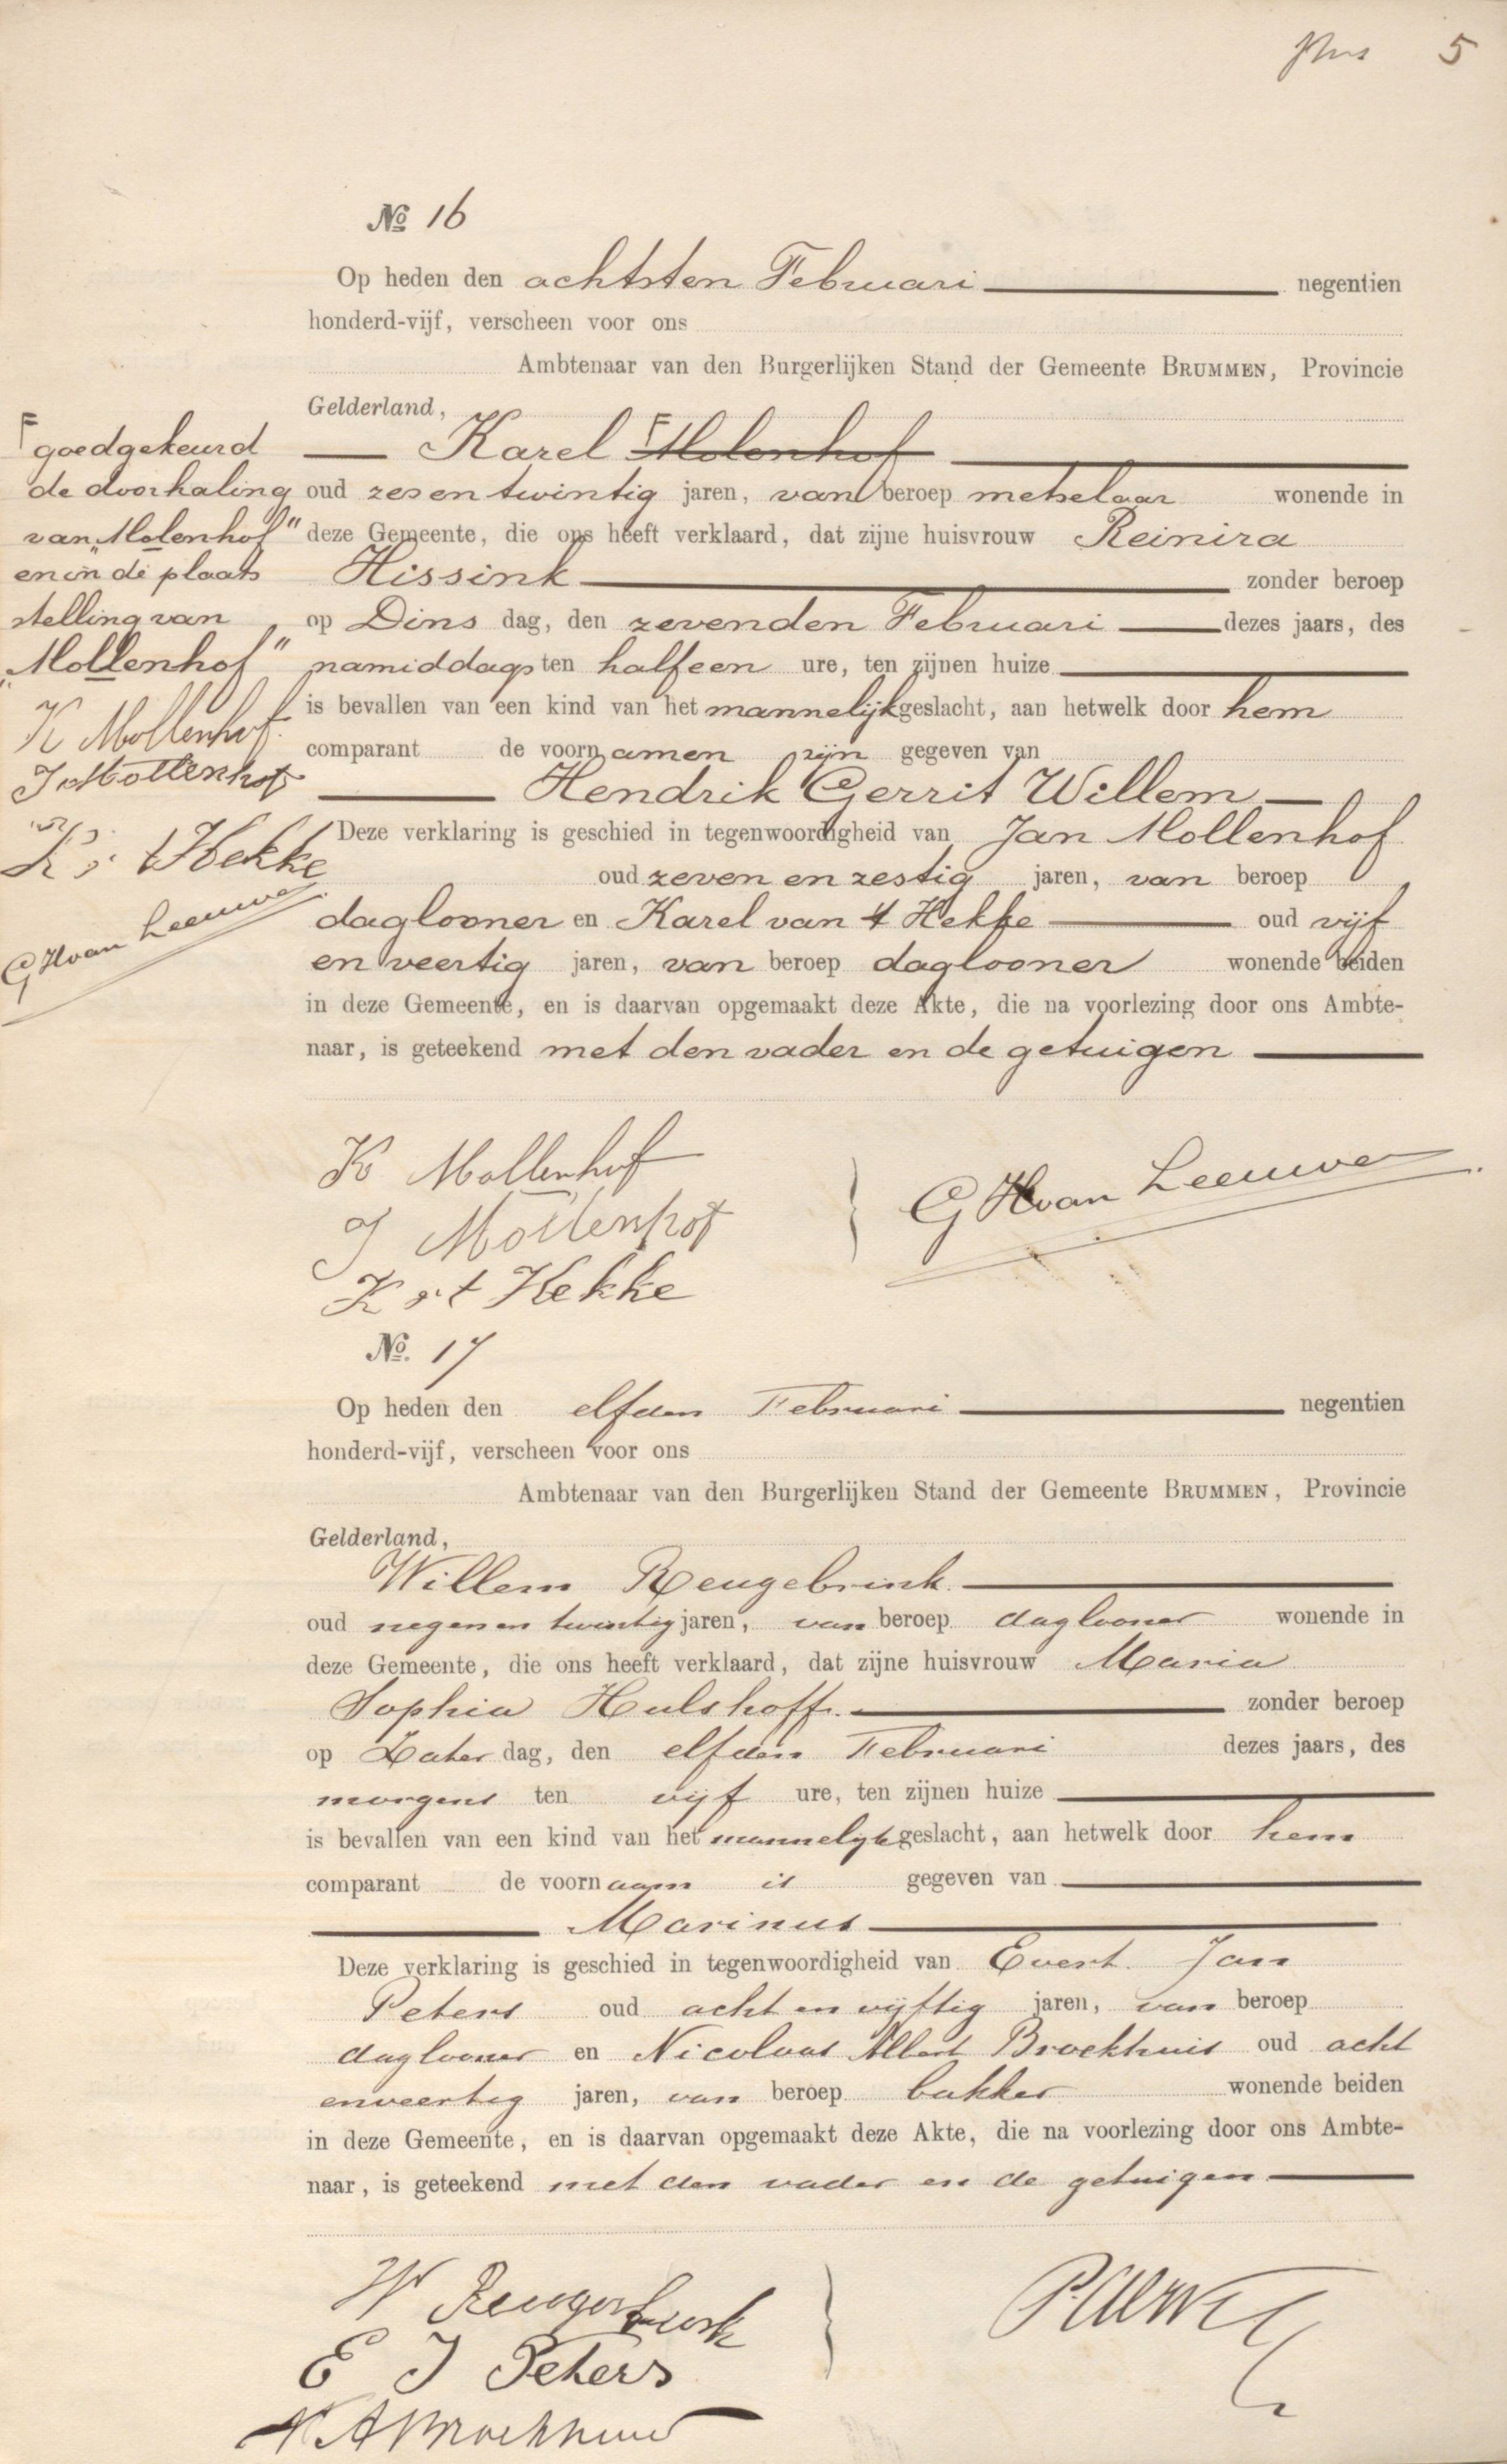 5
№ 16
Op heden den achtsten Februari negentien
honderd-vijf, verscheen voor ons
Ambtenaar van den Burgerlijken Stand der Gemeente BRUMMEN, Provincie
Gelderland,
Karel Molenhof
oud zes en twintig jaren, van beroep metselaar wonende in
deze Gemeente, die ons heeft verklaard, dat zijne huisvrouw Reinira
Hissink zonder beroep
op Dinsdag, den zevenden Februari dezes jaars, des
namiddags ten halfeen ure, ten zijnen huize
is bevallen van een kind van het mannelijk geslacht, aan hetwelk door hem
comparant de voornamen zijn gegeven van
Hendrik Gerrit Willem
Deze verklaring is geschied in tegenwoordigheid van Jan Mollenhof
oud zeven en zestig jaren, van beroep
daglooner en Karel van 't Hekke oud vijf
en veertig jaren, van beroep daglooner wonende beiden
in deze Gemeente, en is daarvan opgemaakt deze Akte, die na voorlezing door ons Ambte-
naar, is geteekend met den vader en de getuigen
goedgekeurd
de doorhaling
van "Molenhof"
en in de plaats
stelling van
"Mollenhof"
K Mollenhof
J Mollenhof
K v t Hekke
G H van Leeuwen
K Mollenhof
J Mollenhof
K v t Hekke
G H van Leeuwen
№. 17
Op heden den elfden Februari negentien
honderd-vijf, verscheen voor ons
Ambtenaar van den Burgerlijken Stand der Gemeente BRUMMEN, Provincie
Gelderland,
Willem Reugebrink
oud negen en twintig jaren, van beroep daglooner wonende in
deze Gemeente, die ons heeft verklaard, dat zijne huisvrouw Maria
Sophia Hulshoff zonder beroep
op Zaterdag, den elfden Februari dezes jaars, des
morgens ten vijf ure, ten zijnen huize
is bevallen van een kind van het mannelijk geslacht, aan hetwelk door hem
comparant de voornaam is gegeven van
Marinus
Deze verklaring is geschied in tegenwoordigheid van Evert Jan
Peters oud acht en vijftig jaren, van beroep
daglooner en Nicolaas Albert Broekhuis oud acht
en veertig jaren, van beroep bakker wonende beiden
in deze Gemeente, en is daarvan opgemaakt deze Akte, die na voorlezing door ons Ambte-
naar, is geteekend met den vader en de getuigen
W Reugebrink
E J Peters
N A Broekhuis